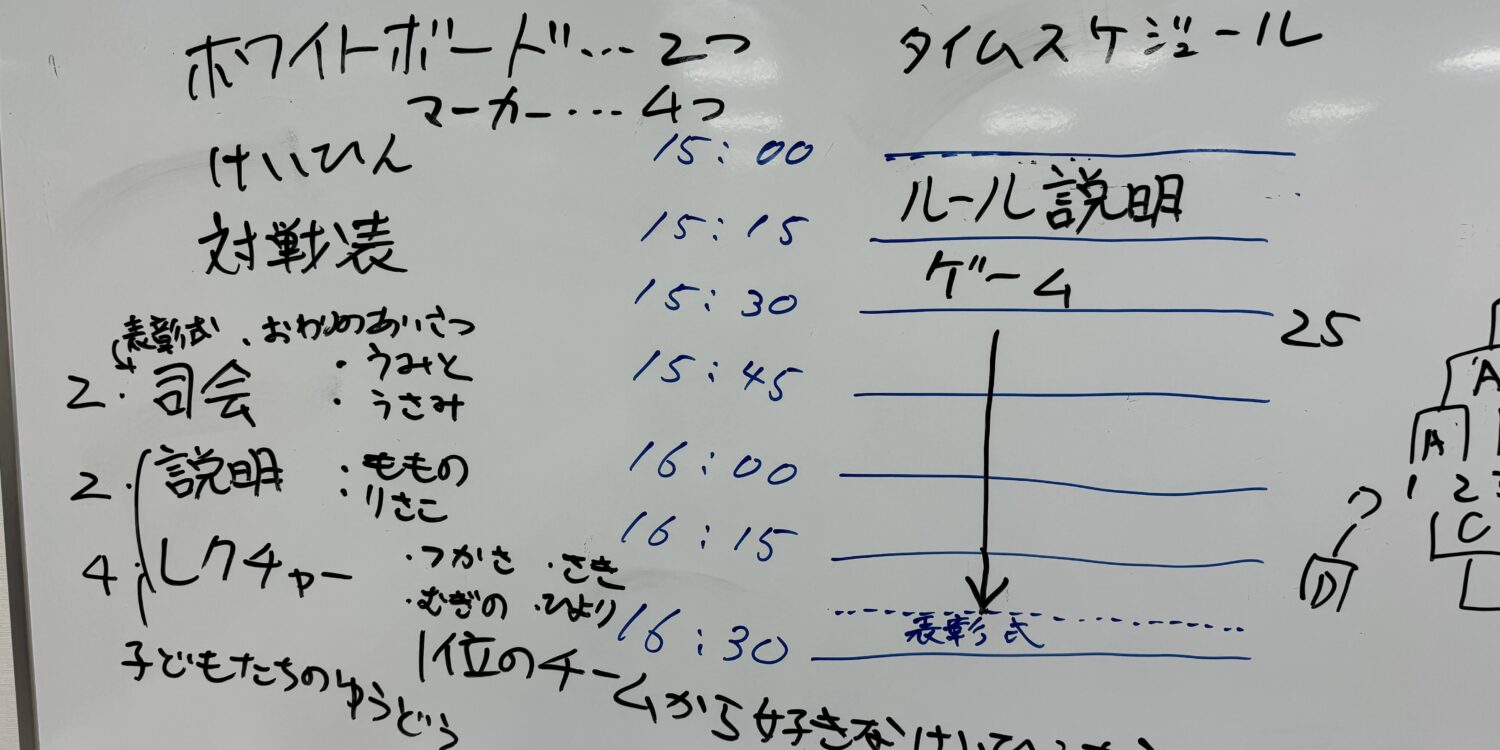 ホワイトボード…2つ
マーカー…4つ
けいひん
対戦表
表彰式、おわりのあいさつ
2・司会
・うみと
・うさみ
2・説明
・ももの
・りさこ
4・レクチャー
・つかさ ・さき
・むぎの ・ひより
子どもたちのゆうどう
1位のチームから好きな
タイムスケジュール
15:00
ルール説明
15:15
ゲーム
15:30
25
15:45
16:00
16:15
表彰式
16:30
A
A
1 2 3
C
D